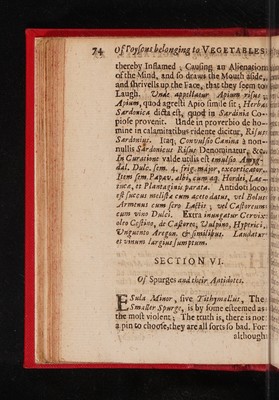 74 Of Poysons belonging to VEGETABLES
thereby Inflamed, Causing an Alienation
of the Mind, and so draws the Mouth aside,
and shrivels up the Face, that they seem to
Laugh. Unde appellatur Apium risus
Apium, quod agresti Apio simile sit, Herba
Sardonica dicta est, quod in Sardinia Co-
piose provenit. Unde in proverbio de ho-
mine in calamitatibus ridente dicitur, Risus
Sardonius. Itaq, Convulsio Canina à non-
nullis Sardonicus Risus Denominatur, &c.
In Curatione valde utilis est emulsio Amyg-
dal. Dulc. sem. 4. frig. major, excorticator.
Item sem. Papav. albi, cum aq. Hordei, Lac-
tuca, et Plantaginis parata. Antidoti loco
est succus melissæ cum aceto datus, vel Bolus
Armenus cum sero Lactis; vel Castorium
cum vino Dulci. Extra inungatur Cervix
oleo Costino, de Castoreo, Vulpino, Hyperici,
Unguento Aregon, & similibus. Laudatur
et vinum largius sumptum.
SECTION VI.
Of Spurges and their Antidotes.
ESula Minor, sive Tithymallus, The
Smaller Spurge, is by some esteemed as
the most violent; The truth is, there is not
a pin to choose, they are all sorts so bad. For
although